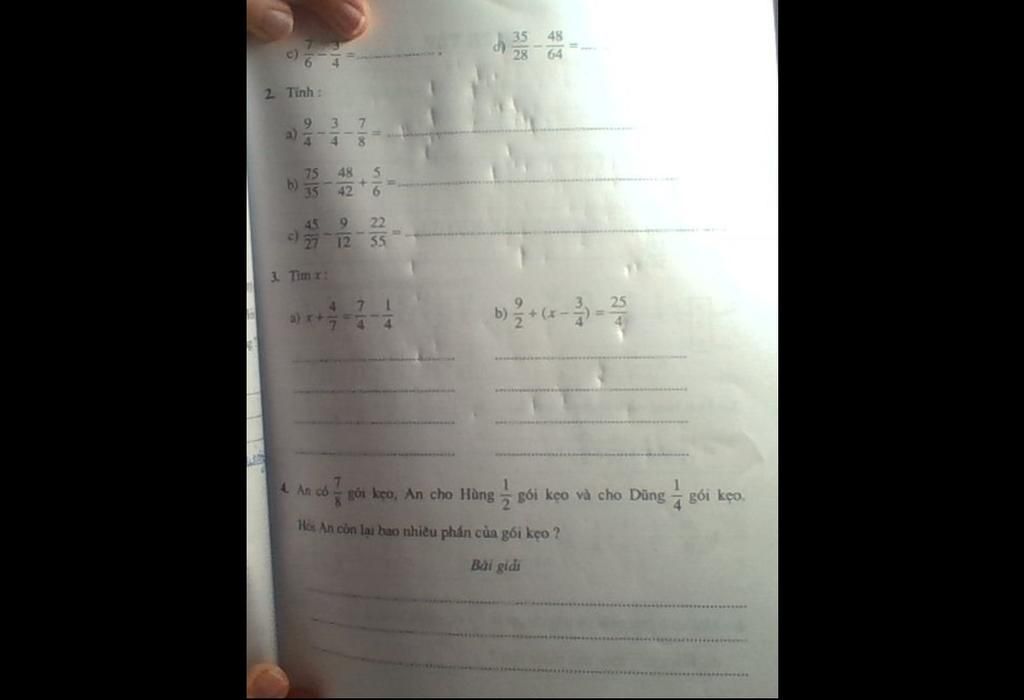 c) 7/6 - 3/4 = ............ . d) 35/28 - 48/64 = .....
2. Tính :
a) 9/4 - 3/4 - 7/8 = ............
b) 75/35 - 48/42 + 5/6 = ............
c) 45/27 - 9/12 - 22/55 = ............
3. Tìm x :
a) x + 4/7 = 7/4 - 1/4 b) 9/2 + (x - 3/4) = 25/4
4. An có 7/8 gói kẹo, An cho Hùng 1/2 gói kẹo và cho Dũng 1/4 gói kẹo.
Hỏi An còn lại bao nhiêu phần của gói kẹo ?
Bài giải